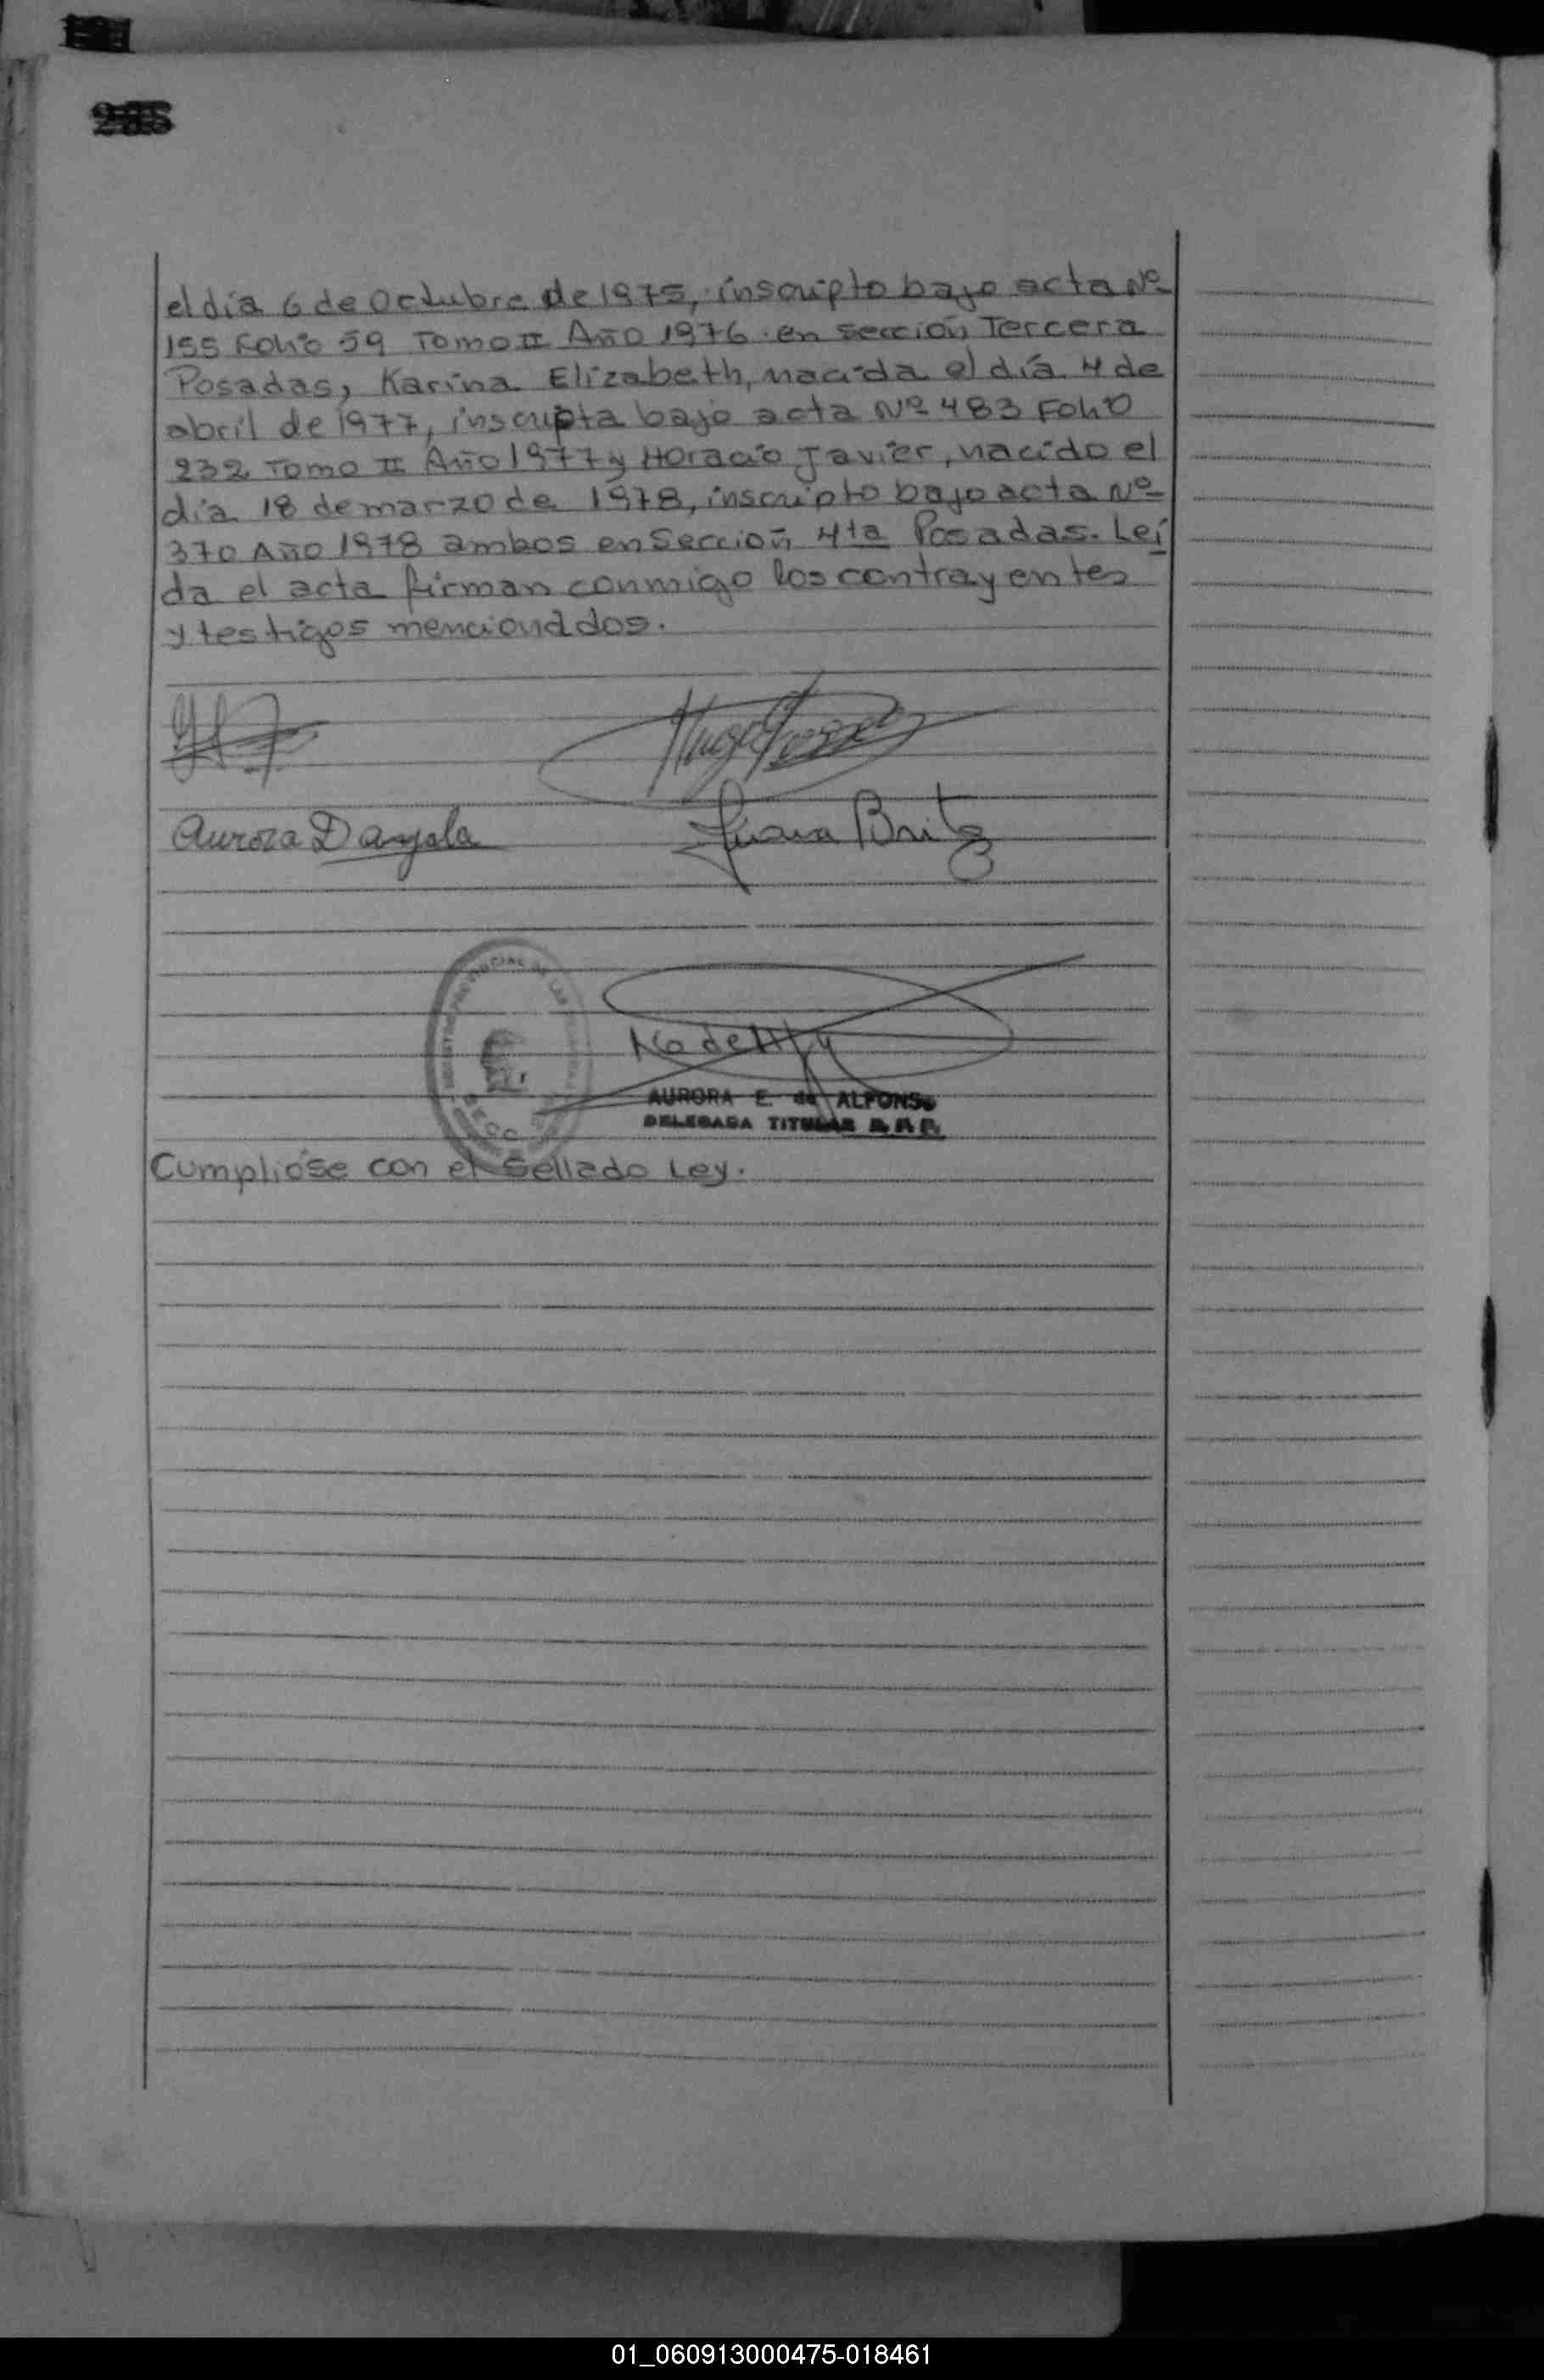 el día 6 de Octubre de 1975, inscripto bajo acta Nº
155 Folio 59 Tomo II Año 1976 en sección Tercera
Posadas, Karina Elizabeth, nacida el día 4 de
abril de 1977, inscripta bajo acta Nº 483 Folio
232 Tomo II Año 1977 y Horacio Javier, nacido el
día 18 de marzo de 1978, inscripto bajo acta Nº
370 Año 1978 ambos en Sección 4ta Posadas. Leí
da el acta firman conmigo los contrayentes
y testigos mencionados.
Hugo
Aurora D Juana Britz
AURORA E. de ALFONSO
DELEGADA TITULAR
Cumplióse con el Sellado Ley.
01_060913000475-018461